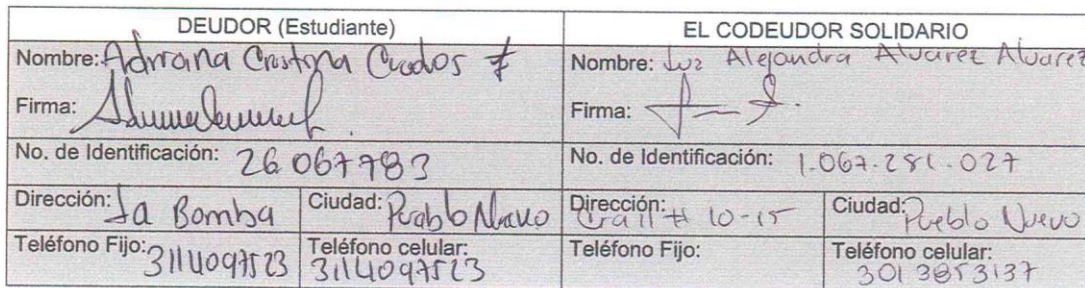 DEUDOR (Estudiante)
EL CODEUDOR SOLIDARIO
Nombre: Adriana Cristina
Nombre: Luz Alejandra Alvarez Alvarez
Firma:
Firma:
No. de Identificación: 26.067783
No. de Identificación: 1.067.281.027
Dirección: La Bomba
Ciudad: Pueblo Nuevo
Dirección: Cra 11 # 10-15
Ciudad: Pueblo Nuevo
Teléfono Fijo: 3114097523
Teléfono celular: 3114097523
Teléfono Fijo:
Teléfono celular: 3013853137